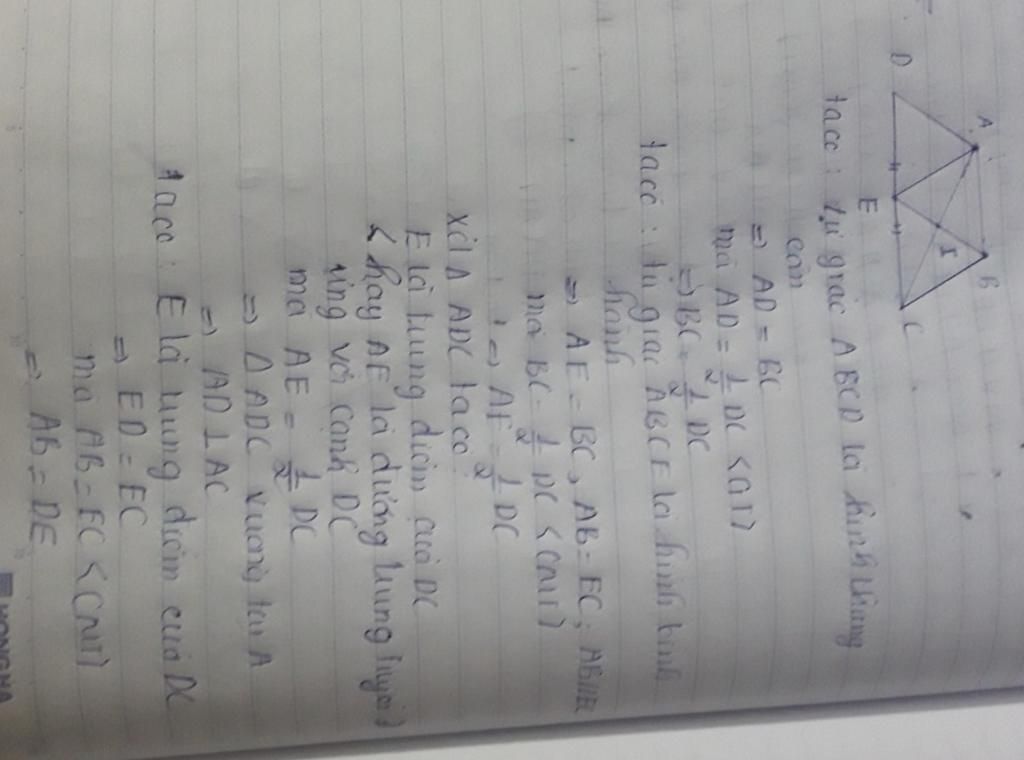 A
B
D
E
I
C
ta có : tứ giác ABCD là hình thang
cân
⇒ AD = BC
mà AD = 1/2 DC < GT >
⇒ BC = 1/2 DC
ta có : tứ giác ABCE là hình bình
hành
⇒ AE = BC , AB = EC ; AB//EC
mà BC = 1/2 DC < CMT >
⇒ AE = 1/2 DC
Xét Δ ADC ta có
E là trung điểm của DC
< hay AE là đường trung tuyến >
ứng với cạnh DC
mà AE = 1/2 DC
⇒ Δ ADC vuông tại A
⇒ AD ⊥ AC
ta có : E là trung điểm của DC
⇒ ED = EC
mà AB = EC < CMT >
⇒ AB = DE
HONG HA